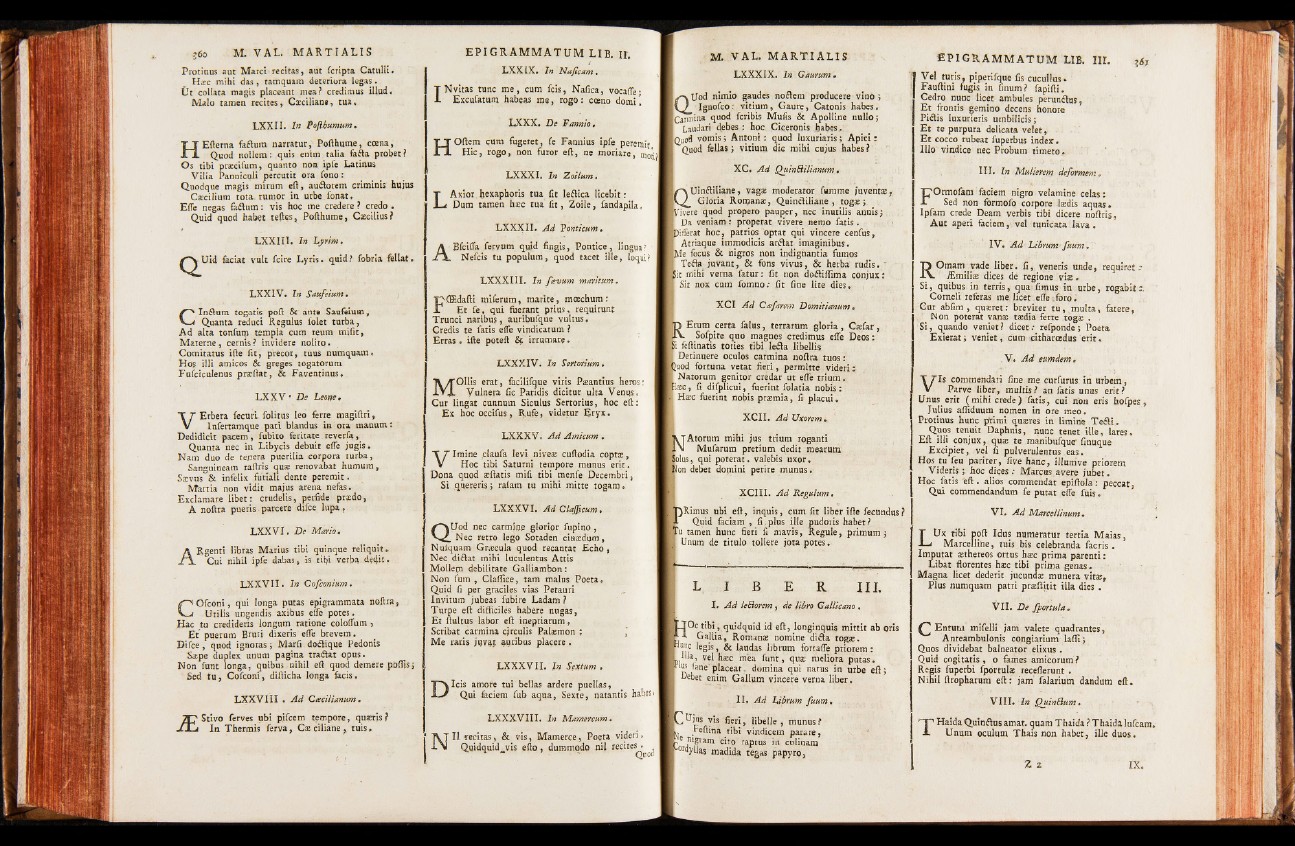 360 M. VAL. MARTIALIS
Protinus aut Marci recitas, aut ſcripta Catulli.
Hæc mihi das, tamquam deteriora legas.
Ut collata magis placeant mea? credimus illud.
Malo tamen recites, Cæciliane, tua.
LXXII. In Poſthumum.
HEſterna factum narratur, Poſthume, cœna,
Quod nollem: quis enim talia facta probet?
Os tibi præciſum, quanto non ipſe Latinus
Vilia Panniculi percutit ora ſono:
Quodque magis mirum eſt, auctorem criminis hujus
Cæcilium tota rumor in urbe ſonat.
Eſſe negas factum: vis hoc me credere? credo.
Quid quod habet teſtes, Poſthume, Cæcilius?
LXXIII. In Lyrim.
QUid faciat vult ſcire Lyris. quid? ſobria fellat.
LXXIV. In Saufeium.
CInctum togatis poſt & ante Saufeium,
Quanta reduci Regulus ſolet turba,
Ad alta tonſum templa cum reum miſit,
Materne, cernis? invidere nolito.
Comitatus iſte ſit, precor, tuus numquam.
Hos illi amicos & greges togatorum
Fuſciculenus præſtat, & Faventinus.
LXXV. De Leone.
VErbera ſecuri ſolitus leo ferre magiſtri,
Inſertamque pati blandus in ora manum:
Dedidicit pacem, ſubito feritate reverſa,
Quanta nec in Libycis debuit eſſe jugis.
Nam duo de tenera puerilia corpora turba,
Sanguineam raſtris quæ renovabat humum,
Sævus & infelix furiali dente peremit.
Martia non vidit majus arena nefas.
Exclamare libet: crudelis, perfide prædo,
A noſtra pueris parcere diſce lupa.
LXXVI. De Mario.
ARgenti libras Marius tibi quinque reliquit.
Cui nihil ipſe dabas, is tibi verba dedit.
LXXVII. In Coſconium.
COſconi, qui longa putas epigrammata noſtra,
Utilis ungendis axibus eſſe potes.
Hac tu credideris longum ratione coloſſum,
Et puerum Bruti dixeris eſſe brevem.
Diſce, quod ignoras; Marſi doctique Pedonis
Sæpe duplex unum pagina tractat opus.
Non ſunt longa, quibus nihil eſt quod demere poſſis;
Sed tu, Coſconi, diſticha longa facis.
LXXVIII. Ad Cæcilianum.
ÆStivo ſerves ubi piſcem tempore, quæris?
In Thermis ſerva, Cæciliane, tuis.
EPIGRAMMATUM LIB. II.
LXXIX. In Naſicam.
INvitas tunc me, cum ſcis, Naſica, vocaſſe;
Excuſatum habeas me, rogo: cœno domi.
LXXX. De Fannio.
HOſtem cum fugeret, ſe Fannius ipſe peremit.
Hic, rogo, non furor eſt, ne moriare, mori?
LXXXI. In Zoilum.
LAxior hexaphoris tua ſit lectica licebit:
Dum tamen hæc tua ſit, Zoile, ſandapila.
LXXXII. Ad Ponticum.
ABſciſſa ſervum quid fingis, Pontice, lingua?
Neſcis tu populum, quod tacet ille, loqui?
LXXXIII. In ſævum maritum.
FŒdaſti miſerum, marite, mœchum:
Et ſe, qui fuerant prius, requirunt
Trunci naribus, auribuſque vultus.
Credis te ſatis eſſe vindicatum?
Erras. iſte poteſt & irrumare.
LXXXIV. In Sertorium.
MOllis erat, faciliſque viris Pæantius heros:
Vulnera ſic Paridis dicitur ulta Venus.
Cur lingat cunnum Siculus Sertorius, hoc eſt:
Ex hoc occiſus, Rufe, videtur Eryx.
LXXXV. Ad Amicum.
VImine clauſa levi niveæ cuſtodia coptæ,
Hoc tibi Saturni tempore munus erit.
Dona quod æſtatis miſi tibi menſe Decembri,
Si quereris; raſam tu mihi mitte togam.
LXXXVI. Ad Claſſicum.
QUod nec carmine glorior ſupino,
Nec retro lego Sotaden cinædum,
Nuſquam Græcula quod recantat Echo,
Nec dictat mihi luculentus Attis
Mollem debilitate Galliambon:
Non ſum, Claſſice, tam malus Poeta.
Quid ſi per graciles vias Petauri
Invitum jubeas ſubire Ladam?
Turpe eſt difficiles habere nugas,
Et ſtultus labor eſt ineptiarum,
Scribat carmina circulis Palæmon:
Me raris juvat auribus placere.
LXXXVII. In Sextum.
DIcis amore tui bellas ardere puellas,
Qui faciem ſub aqua, Sexte, natantis habes.
LXXXVIII. In Mamercum.
NIl recitas, & vis, Mamerce, Poeta videri.
Quidquid vis eſto, dummodo nil recites.
Quod
M. VAL. MARTIALIS
LXXXIX. In Gaurum.
QUod nimio gaudes noctem producere vino;
Ignoſco: vitium, Gaure, Catonis habes.
Carmina quod ſcribis Muſis & Apolline nullo;
Laudari debes: hoc Ciceronis habes.
Quod vomis; Antoni: quod luxuriaris; Apici:
Quod fellas; vitium dic mihi cujus habes?
XC. Ad Quinctilianum.
QUinctiliane, vagæ moderator ſumme juventæ,
Gloria Romanæ, Quinctiliane, togæ;
Vivere quod propero pauper, nec inutilis annis;
Da veniam: properat vivere nemo ſatis.
Differat hoc, patrios optat qui vincere cenſus,
Atriaque immodicis arctat imaginibus.
Me focus & nigros non indignantia fumos
Tecta juvant, & fons vivus, & herba rudis.
Sit mihi verna ſatur: ſit non doctiſſima conjux:
Sit nox cum ſomno: ſit ſine lite dies.
XCI Ad Cæſarem Domitianum.
REtum certa ſalus, terrarum gloria, Cæſar,
Soſpite quo magnos credimus eſſe Deos:
Si feſtinatis toties tibi lecta libellis
Detinuere oculos carmina noſtra tuos:
Quod fortuna vetat fieri, permitte videri:
Natorum genitor credar ut eſſe trium.
Hæc, ſi diſplicui, fuerint ſolatia nobis:
Hæc fuerint nobis præmia, ſi placui.
XCII. Ad Uxorem.
NAtorum mihi jus trium roganti
Muſarum pretium dedit mearum
Solus, qui poterat. valebis uxor.
Non debet domini perire munus.
XCIII. Ad Regulum.
PRimus ubi eſt, inquis, cum ſit liber iſte ſecundus?
Quid faciam, ſi plus ille pudoris habet?
Tu tamen hunc fieri ſi mavis, Regule, primum;
Unum de titulo tollere jota potes.
LIBER III.
I. Ad lectorem, de libro Gallicano.
HOc tibi, quidquid id eſt, longinquis mittit ab oris
Gallia, Romanæ nomine dicta togæ.
Hunc legis, & laudas librum fortaſſe priorem:
Illa, vel hæc mea ſunt, quæ meliora putas.
Plus ſane placeat, domina qui natus in urbe eſt;
Debet enim Gallum vincere verna liber.
II. Ad Librum ſuum.
CUjus vis fieri, libelle, munus?
Feſtina tibi vindicem parare,
Ne nigram cito raptus in culinam
Cordyllas madida tegas papyro,
EPIGRAMMATUM LIB. III. 361
Vel turis, piperiſque ſis cucullus.
Fauſtini fugis in ſinum? ſapiſti.
Cedro nunc licet ambules perunctus,
Et frontis gemino decens honore
Pictis luxurieris umbilicis;
Et te purpura delicata velet,
Et cocco rubeat ſuperbus index.
Illo vindice nec Probum timeto.
III. In Mulierem deformem.
FOrmoſam faciem nigro velamine celas:
Sed non formoſo corpore lædis aquas.
Ipſam crede Deam verbis tibi dicere noſtris,
Aut aperi faciem, vel tunicata lava.
IV. Ad Librum ſuum.
ROmam vade liber. ſi, veneris unde, requiret:
Æmiliæ dices de regione viæ.
Si, quibus in terris, qua ſimus in urbe, rogabit:
Corneli referas me licet eſſe foro.
Cur abſim, quæret: breviter tu, multa, fatere,
Non poterat vanæ tædia ferre togæ.
Si, quando veniet? dicet: reſponde; Poeta
Exierat; veniet, cum citharœdus erit.
V. Ad eumdem.
VIs commendari ſine me curſurus in urbem,
Parve liber, multis? an ſatis unus erit?
Unus erit (mihi crede) ſatis, cui non eris hoſpes,
Julius aſſiduum nomen in ore meo.
Protinus hunc primi quæres in limine Tecti.
Quos tenuit Daphnis, nunc tenet ille, lares.
Eſt illi conjux, quæ te manibuſque ſinuque
Excipiet, vel ſi pulverulentus eas.
Hos tu ſeu pariter, ſive hanc, illumve priorem
Videris; hoc dices: Marcus avere jubet.
Hoc ſatis eſt. alios commendat epiſtola: peccat,
Qui commendandum ſe putat eſſe ſuis.
VI. Ad Marcellinum.
LUx tibi poſt Idus numeratur tertia Maias,
Marcelline, tuis bis celebranda ſacris.
Imputat æthereos ortus hæc prima parenti:
Libat florentes hæc tibi prima genas.
Magna licet dederit jucundæ munera vitæ,
Plus numquam patri præſtitit illa dies.
VII. De ſportula.
CEntum miſelli jam valete quadrantes,
Anteambulonis congiarium laſſi;
Quos dividebat balneator elixus.
Quid cogitatis, o fames amicorum?
Regis ſuperbi ſportulæ receſſerunt.
Nihil ſtropharum eſt: jam ſalarium dandum eſt.
VIII. In Quinctum.
THaida Quinctus amat. quam Thaida? Thaida luſcam.
Unum oculum Thais non habet, ille duos.
Z z IX.